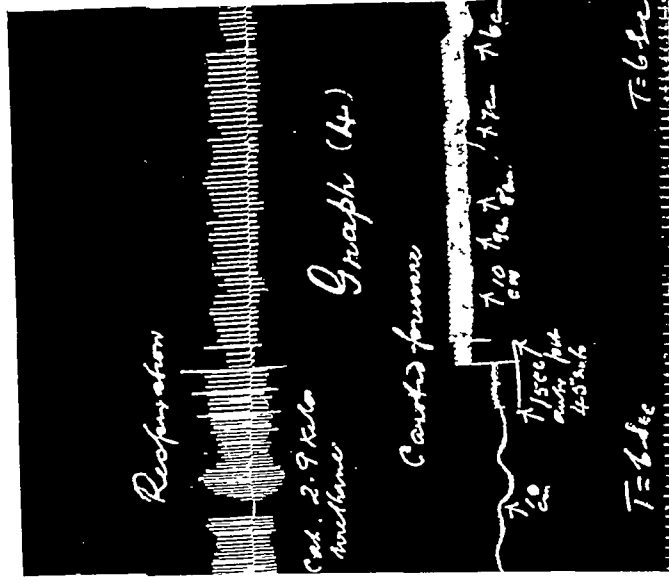 Respiration
Cat. 2.9 Kilo
urethane
Graph (4)
Carotid pressure
↑10
cm
↑15cc↑
4.5
↑10
cm
↑9cm
↑8cm
↑7cm
↑6cm
T=6 sec
T=6 sec